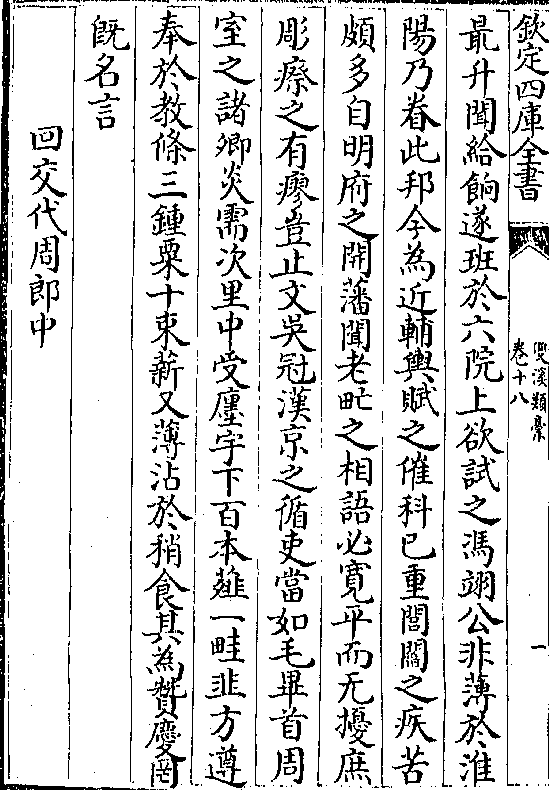 欽定四庫全書
雙溪類稾
卷十八
一
最升聞給餉遂班於六院上欲試之馮翊公非薄於淮
陽乃眷此邦今為近輔輿賦之催科已重閭閻之疾苦
頗多自明府之開藩聞老甿之相語必寛平而无擾庶
彫瘵之有瘳豈止文吳冠漢京之循吏當如毛畢首周
室之諸卿炎需次里中受廛宇下百本薤一畦韭方遵
奉於教條三鍾粟十束薪又薄沾於稍食其為贊慶罔
既名言
回交代周郎中